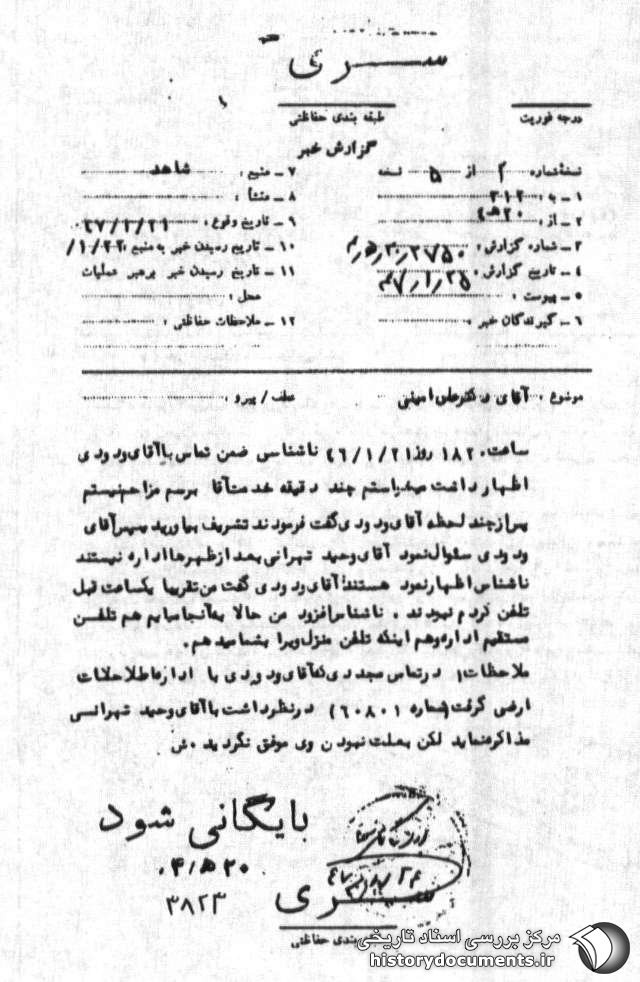 سری
درجه فوریت
طبقه بندی حفاظتی
گزارش خبر
نسخهٔ شماره ۲ از ۵ نسخه
۱ – به : ۳۱۲
۲ – از : ۲۰ ه‍ ۴
۳ – شماره گزارش :
۴ – تاریخ گزارش : ۴۷/۱/۲۵
۵ – پیوست :
۶ – گیرندگان خبر :
۷ – منبع : شاهد
۸ – منشأ :
۹ – تاریخ وقوع : ۴۷/۱/۲۱
۱۰ – تاریخ رسیدن خبر به منبع : ۲۲/۱/
۱۱ – تاریخ رسیدن خبر برهبر عملیات
محل :
۱۲ – ملاحظات حفاظتی :
موضوع : آقای دکترعلی امینی
عطف / پیرو :
ساعت ۱۸۲۰ روز ۴۶/۱/۲۱ ناشناسی ضمن تماس باآقای ودودی
اظهار داشت میخواستم چند دقیقه خدمت آقا برسم مزاحم نیستم
پس از چند لحظه آقای ودودی گفت فرمودند تشریف بیاورید سپس آقای
ودودی سئوال نمود آقای وحید تهرانی بعد از ظهرها اداره نیستند
ناشناس اظهار نمود هستند آقای ودودی گفت من تقریبا یکساعت قبل
تلفن کردم نبودند . ناشناس افزود من حالا به آنجا میایم هم تلفن
مستقیم اداره وهم اینکه تلفن منزل ویرا بشما میدهم .
ملاحظات : در تماس مجددی که آقای ودودی با اداره اطلاعات
ارضی گرفت (شماره ۶۰۸۰۱) در نظر داشت با آقای وحید تهرانی
مذاکره نماید لکن بعلت نبودن وی موفق نگردید .ش
بایگانی شود
۲۰ ه‍ ۴
۳۸۲۳
سری
بندی حفاظتی
مرکز بررسی اسناد تاریخی
historydocuments.ir